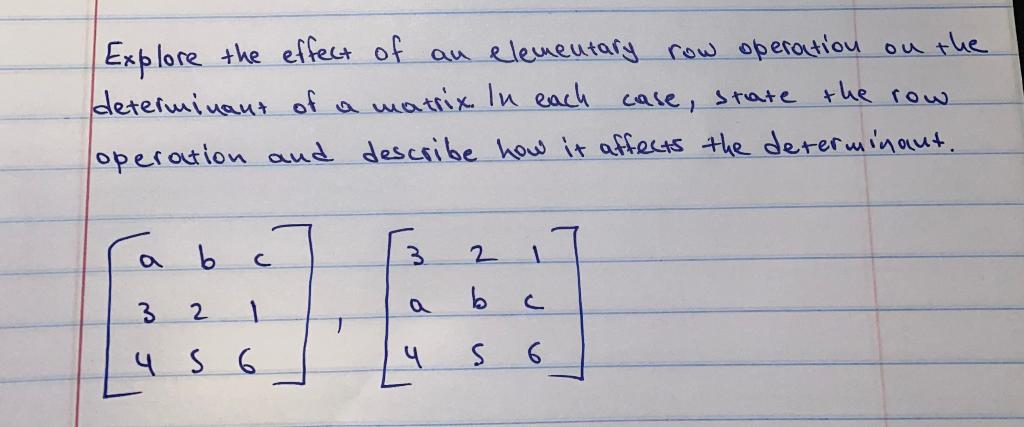 Explore the effect of an elementary row operation on the
determinant of a matrix. In each case, state the row
operation and describe how it affects the determinant.
a b c
3 2 1
4 5 6
,
3 2 1
a b c
4 5 6